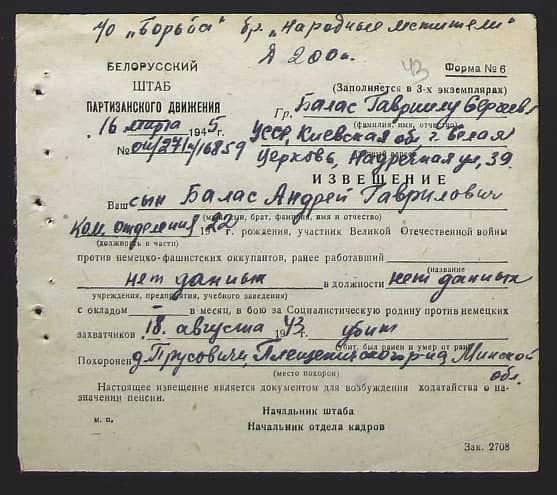 п/о "Борьба" бр. "Народные мстители"
Д 200 п.
43
БЕЛОРУССКИЙ
ШТАБ
ПАРТИЗАНСКОГО ДВИЖЕНИЯ
16 марта 1945 г.
№ 04/271/16859
Форма № 6
(Заполняется в 3-х экземплярах)
Гр. Балас Гавриилу Сергеев
(фамилия, имя, отчество)
УССР, Киевская обл г. Белая
Церковь, Надречная ул, 39.
ИЗВЕЩЕНИЕ
Ваш сын Балас Андрей Гаврилович
(муж, сын, брат, фамилия, имя и отчество)
Ком. отделения 22 г. рождения, участник Великой Отечественной войны
(должность в части)
против немецко-фашистских оккупантов, ранее работавший
(название
нет данных в должности нет данных
учреждения, предприятия, учебного заведения)
с окладом — в месяц, в бою за Социалистическую родину против немецких
захватчиков 18 августа 1943 г. убит
(убит, был ранен и умер от ран)
Похоронен д. Прусовичи, Плещеницкого р-на, Минской
обл.
(место похорон)
Настоящее извещение является документом для возбуждения ходатайства о на-
значении пенсии.
Начальник штаба
м. п.
Начальник отдела кадров
Зак. 2708